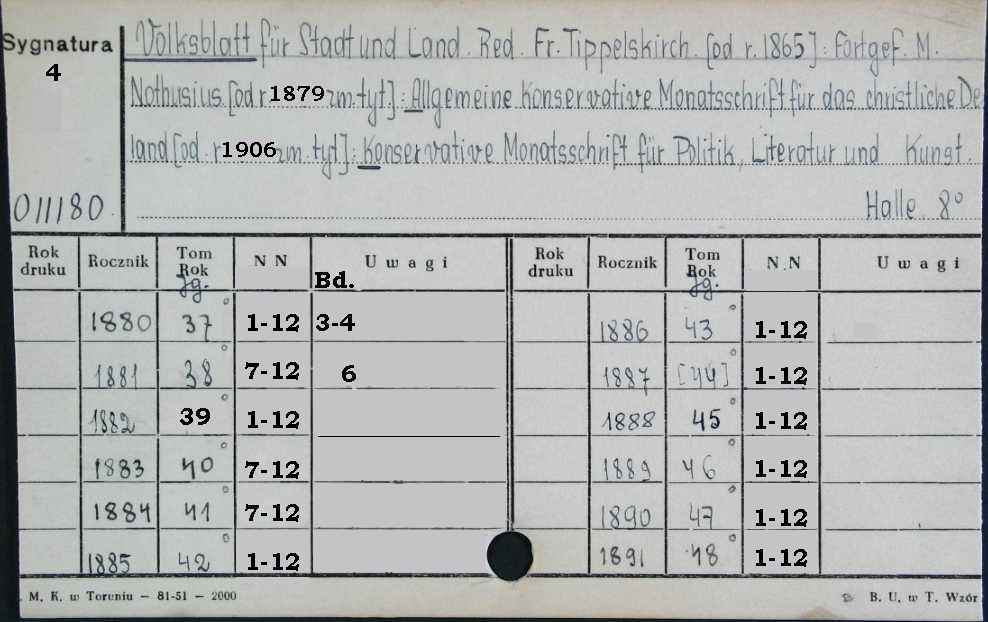 Sygnatura
4
Volksblatt für Stadt und Land. Red. Fr. Tippelskirch. [od r. 1865]: Fortgef. M.
Nathusius [od r 1879 zm. tyt.]: Allgemeine Konservative Monatsschrift für das christliche De
land [od. r 1906 zm. tyt]: Konservative Monatsschrift für Politik, Literatur und Kunst.
011180
Halle. 8°
Rok druku Rocznik Tom Rok Jg. N N U w a g i Rok druku Rocznik Tom Rok Jg. N N U w a g i
Bd.
1880 37° 1-12 3-4 1886 43° 1-12
1881 38° 7-12 6 1887 [44]° 1-12
1882 39° 1-12 1888 45° 1-12
1883 40° 7-12 1889 46° 1-12
1884 41° 7-12 1890 47° 1-12
1885 42° 1-12 1891 48° 1-12
M. K. w Toruniu — 81-51 — 2000
B. U. w T. Wzór